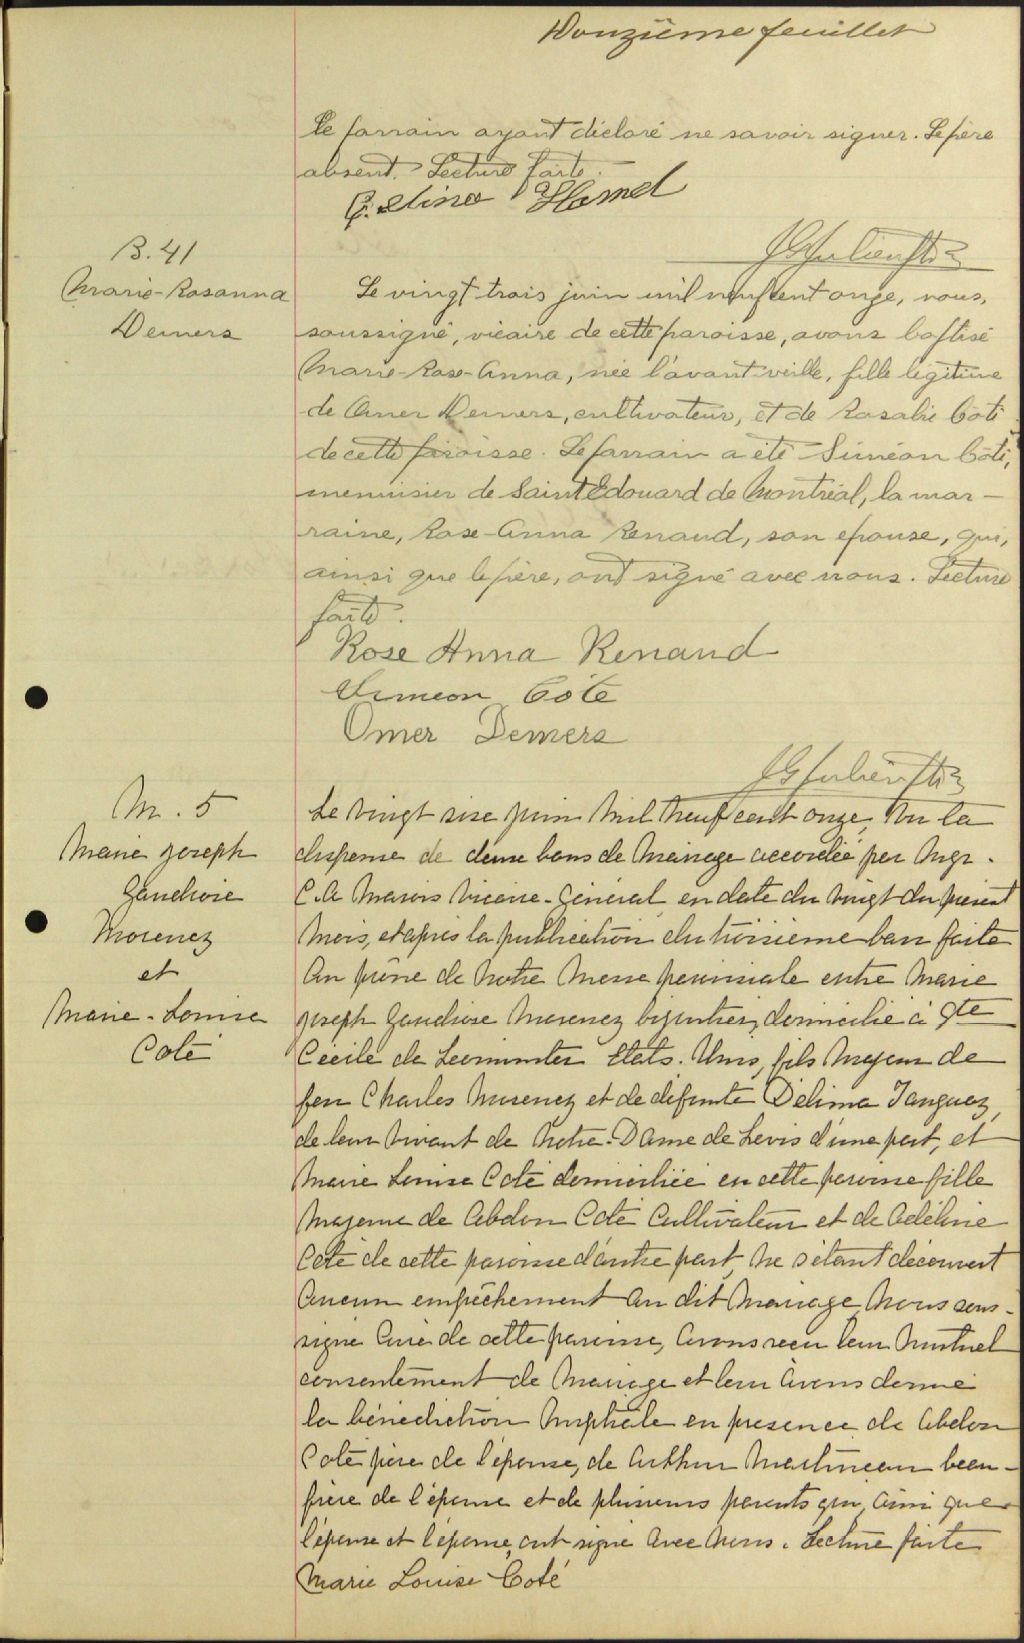 Douzième feuillet
Le parrain ayant déclaré ne savoir signer. Le père
absent. Lecture faite.
Hamel
B. 41
Marie-Rosanna
Demers
Le vingt-trois juin mil neuf cent onze, nous,
soussigné, vicaire de cette paroisse, avons baptisé
Marie-Rose-Anna, née l'avant veille, fille légitime
de Omer Demers, cultivateur, et de Rosalie Côté
de cette paroisse. Le parrain a été Siméon Côté,
menuisier de Saint Edouard de Montréal, la mar-
raine, Rose-Anna Renaud, son epouse, qui,
ainsi que le père, ont signé avec nous. Lecture
faite.
Rose Anna Renaud
Simeon Côté
Omer Demers
M. 5
Marie Joseph
Gaudiose
Morency
et
Marie-Louise
Coté
Le vingt six juin mil neuf cent onze, Vu la
dispense de deux bans de mariage accordée par Mgr.
C. A Marois Vicaire-Général en date du vingt du présent
mois, et après la publication du troisième ban faite
au prône de notre messe paroissiale entre Marie
Joseph Gaudiose Morency bijoutier, domicilié à Ste
Cécile de Leominster Etats-Unis, fils majeur de
feu Charles Morency et de défunte Délima Tanguay,
de leur vivant de Notre-Dame de Levis d'une part, et
Marie Louise Coté domiciliée en cette paroisse fille
majeure de Abdon Coté Cultivateur et de Adéline
Coté de cette paroisse d'autre part, ne s'étant découvert
aucun empêchement au dit mariage, nous sous-
signé Curé de cette paroisse, avons reçu leur mutuel
consentement de mariage et leur avons donné
la bénédiction nuptiale en presence de Abdon
Coté père de l'épouse, de Arthur Martineau beau-
frère de l'épouse et de plusieurs parents qui, ainsi que
l'époux et l'épouse, ont signé avec nous. Lecture faite
Marie Louise Coté